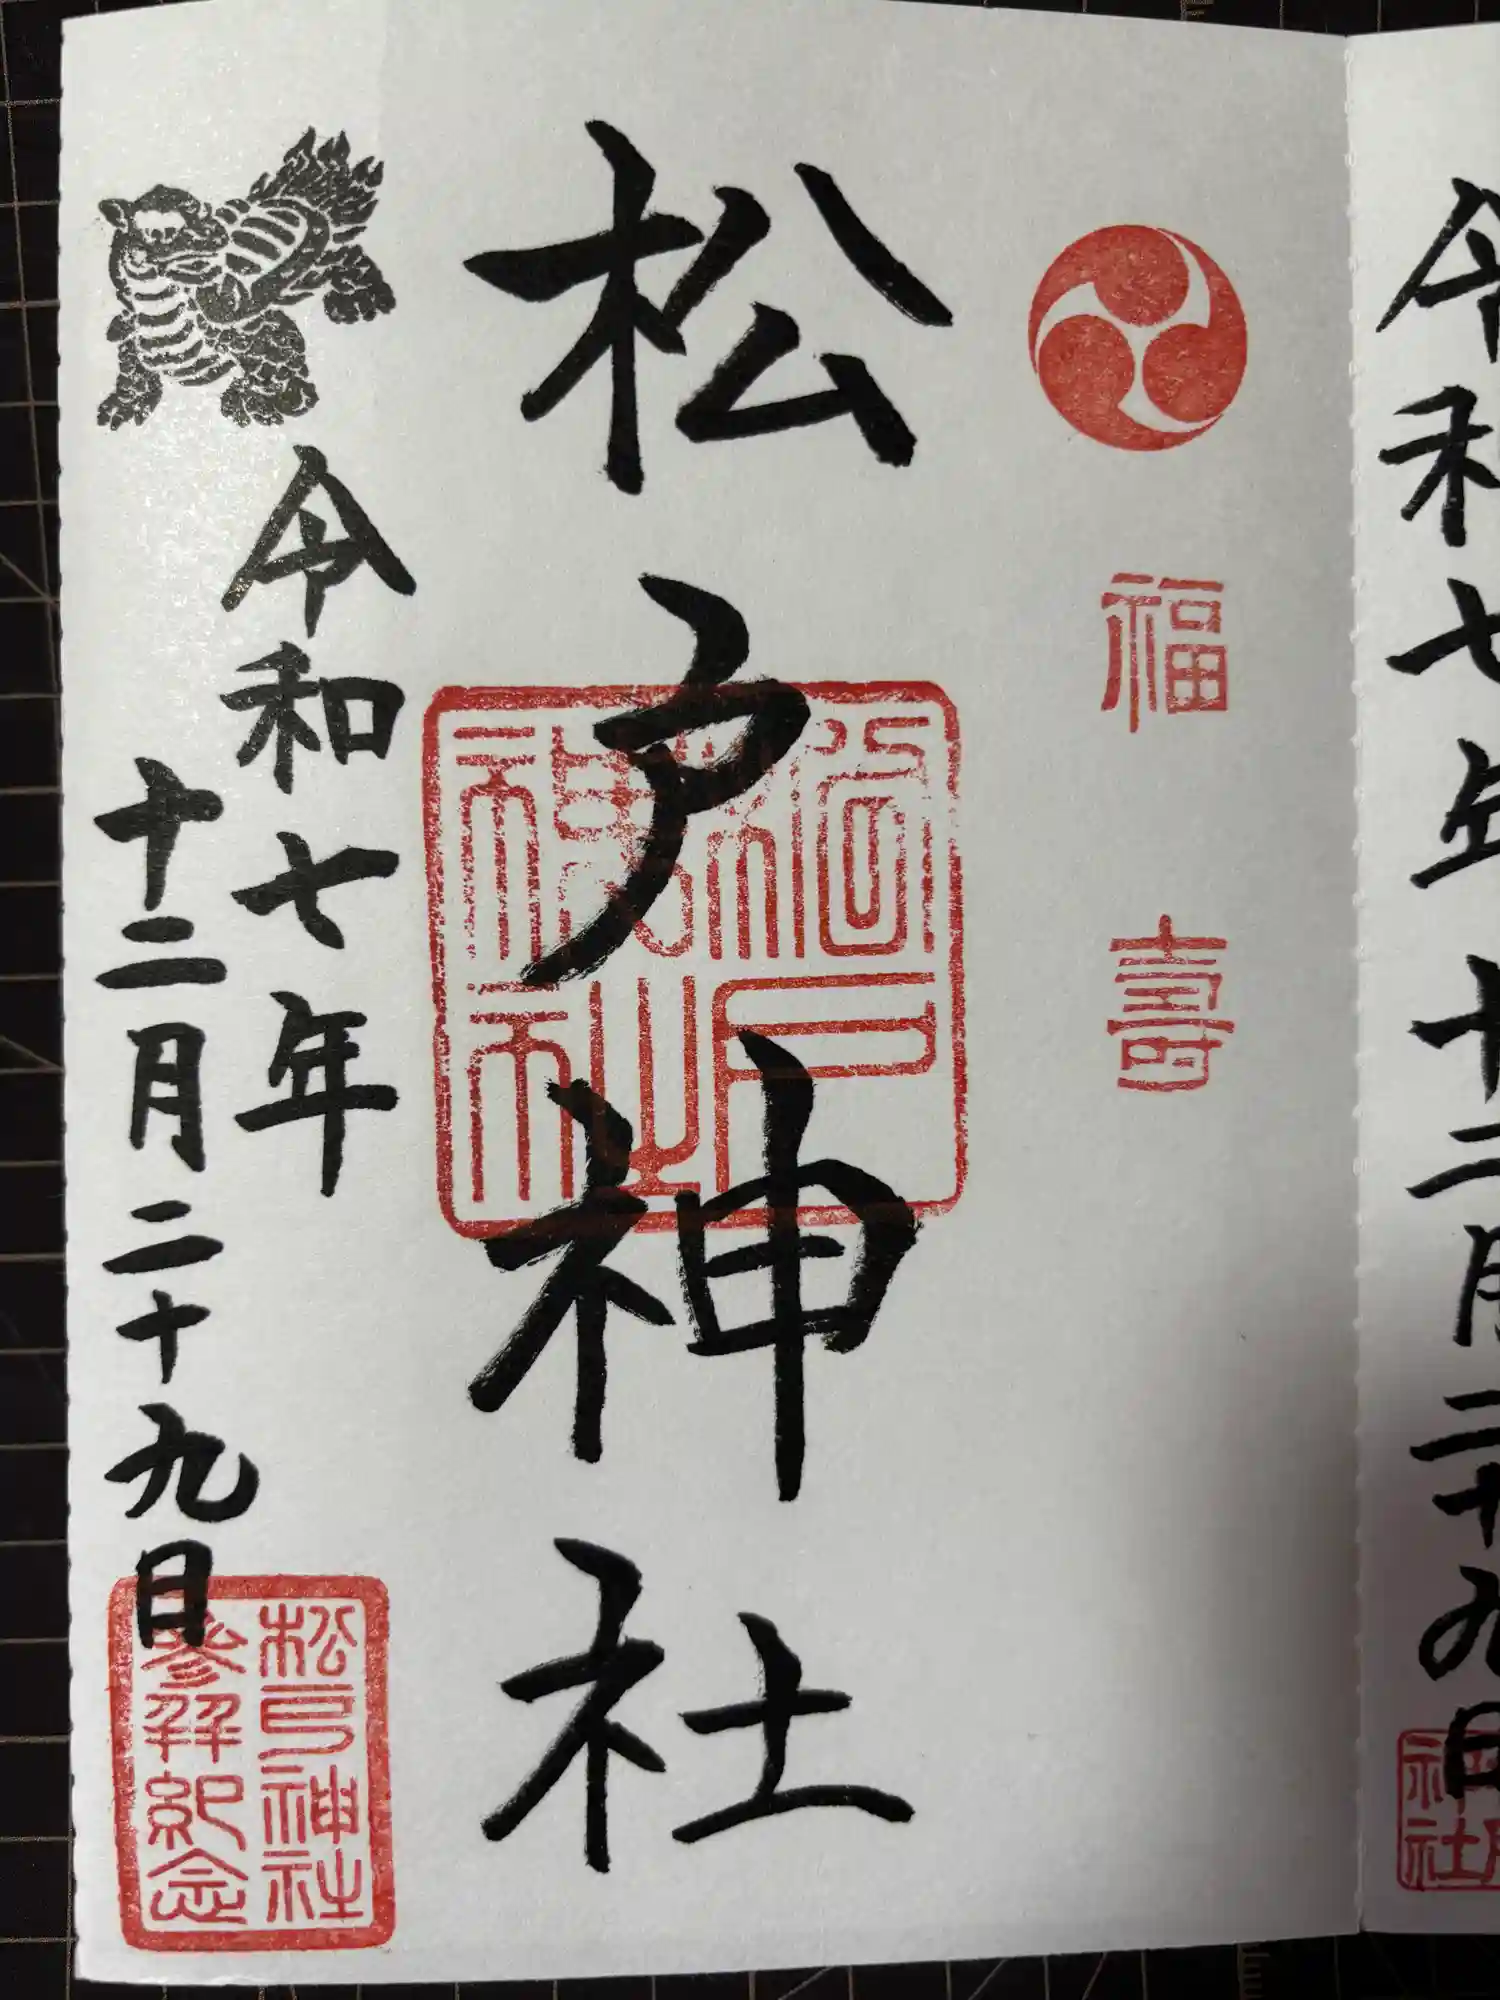 令和七年十二月二十九日
神社
福壽
松戸神社
松戸
神社
令和七年
十二月二十九日
松戸神社
参拝記念